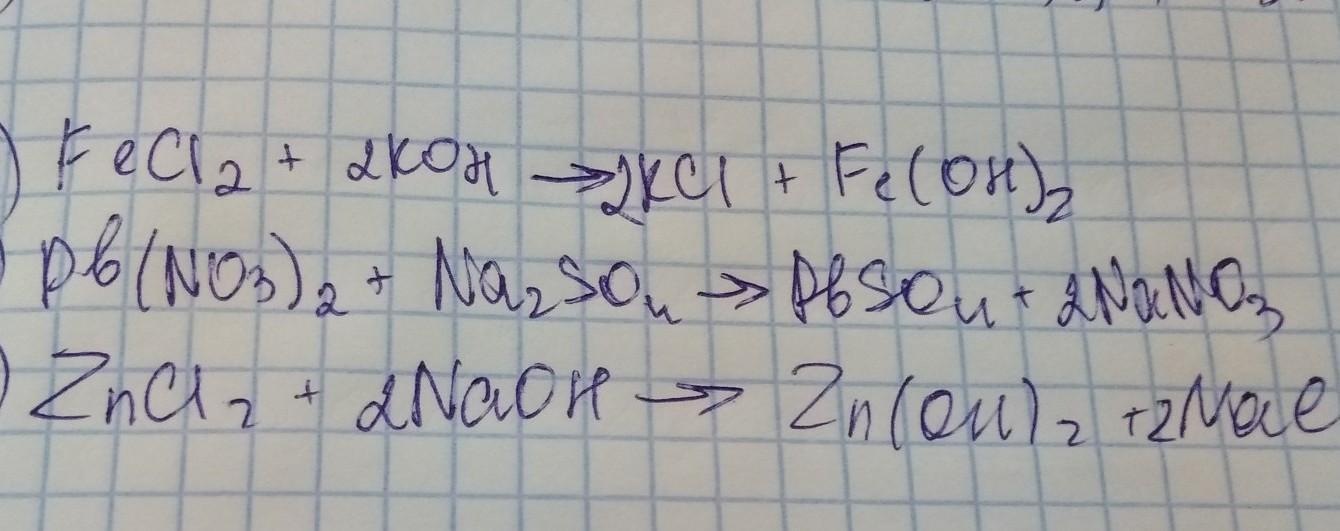 ) FeCl₂ + 2KOH → 2KCl + Fe(OH)₂
) Pb(NO₃)₂ + Na₂SO₄ → PbSO₄ + 2NaNO₃
) ZnCl₂ + 2NaOH → Zn(OH)₂ + 2NaC